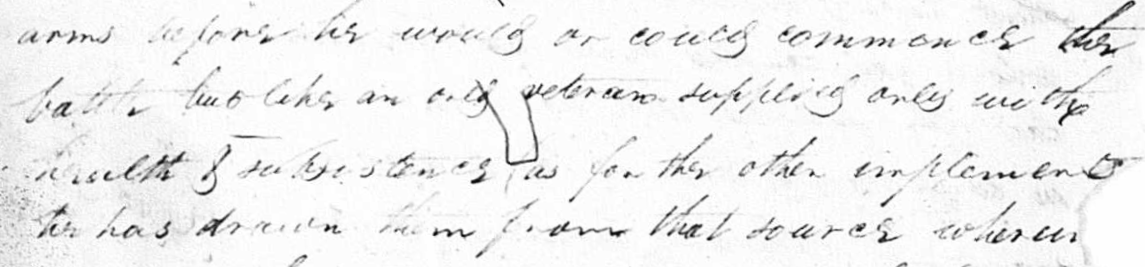 arms before he would or could commence the
battle but like an old veteran supplied only with
health & subsistence as for the other implements
he has drawn them from that source wherein